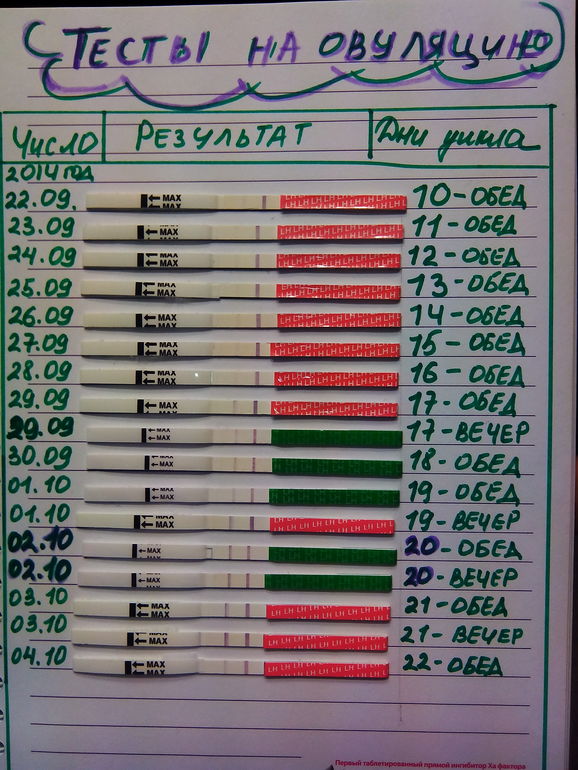 ТЕСТЫ НА ОВУЛЯЦИЮ
ЧИСЛО РЕЗУЛЬТАТ Дни цикла
2014 год
22.09. MAX MAX LH LH LH LH LH LH LH 10-ОБЕД
23.09 MAX MAX LH LH LH LH LH LH LH 11-ОБЕД
24.09 MAX MAX LH LH LH LH LH LH LH 12-ОБЕД
25.09 MAX MAX LH LH LH LH LH LH LH 13-ОБЕД
26.09 MAX MAX LH LH LH LH LH LH LH 14-ОБЕД
27.09 MAX MAX LH LH LH LH LH LH LH 15-ОБЕД
28.09 MAX MAX LH LH LH LH LH LH LH 16-ОБЕД
29.09 MAX LH LH LH LH LH LH LH 17-ОБЕД
29.09 MAX 17-ВЕЧЕР
30.09 MAX 18-ОБЕД
01.10 MAX 19-ОБЕД
01.10 MAX MAX LH LH LH LH LH LH LH 19-ВЕЧЕР
02.10 MAX 20-ОБЕД
02.10 MAX 20-ВЕЧЕР
03.10 MAX MAX LH LH LH LH LH LH LH 21-ОБЕД
03.10 MAX MAX LH LH LH LH LH LH LH 21-ВЕЧЕР
04.10 MAX MAX LH LH LH LH LH LH LH 22-ОБЕД
Первый таблетированный прямой ингибитор Ха фактора